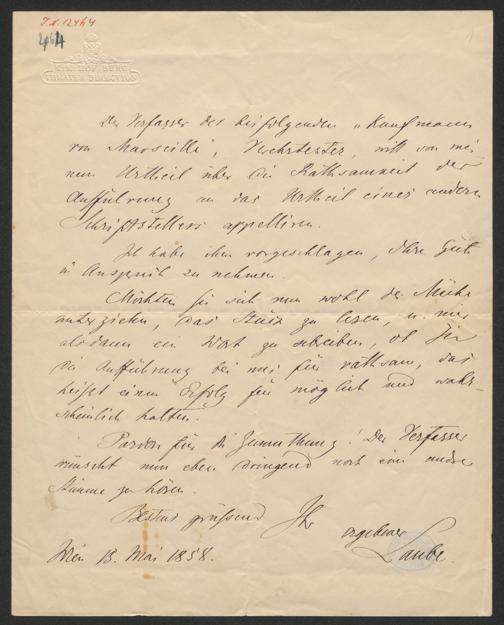 I.N. 12464
464
K.K. HOF-BURG-
THEATER DIRECTION
Der Verfasser des beifolgenden „Kaufmann
von Marseille", Verehrtester, will von mei-
nem Urtheil über die Rathsamkeit der
Aufführung an das Urtheil eines andern
Schriftstellers appelliren.
Ich habe ihm vorgeschlagen, Ihre Güte
in Anspruch zu nehmen.
Möchten Sie sich nun wohl der Mühe
unterziehen, das Stück zu lesen, u. mir
alsdann ein Wort zu schreiben, ob Sie
die Aufführung bei mir für rathsam, das
heißt einen Erfolg für möglich und wahr-
scheinlich halten.
Pardon für die Zumuthung! Der Verfasser
wünscht nun eben dringend noch eine andre
Stimme zu hören.
Bestens grüßend Ihr
ergebener
Laube.
Wien 18. Mai 1858.